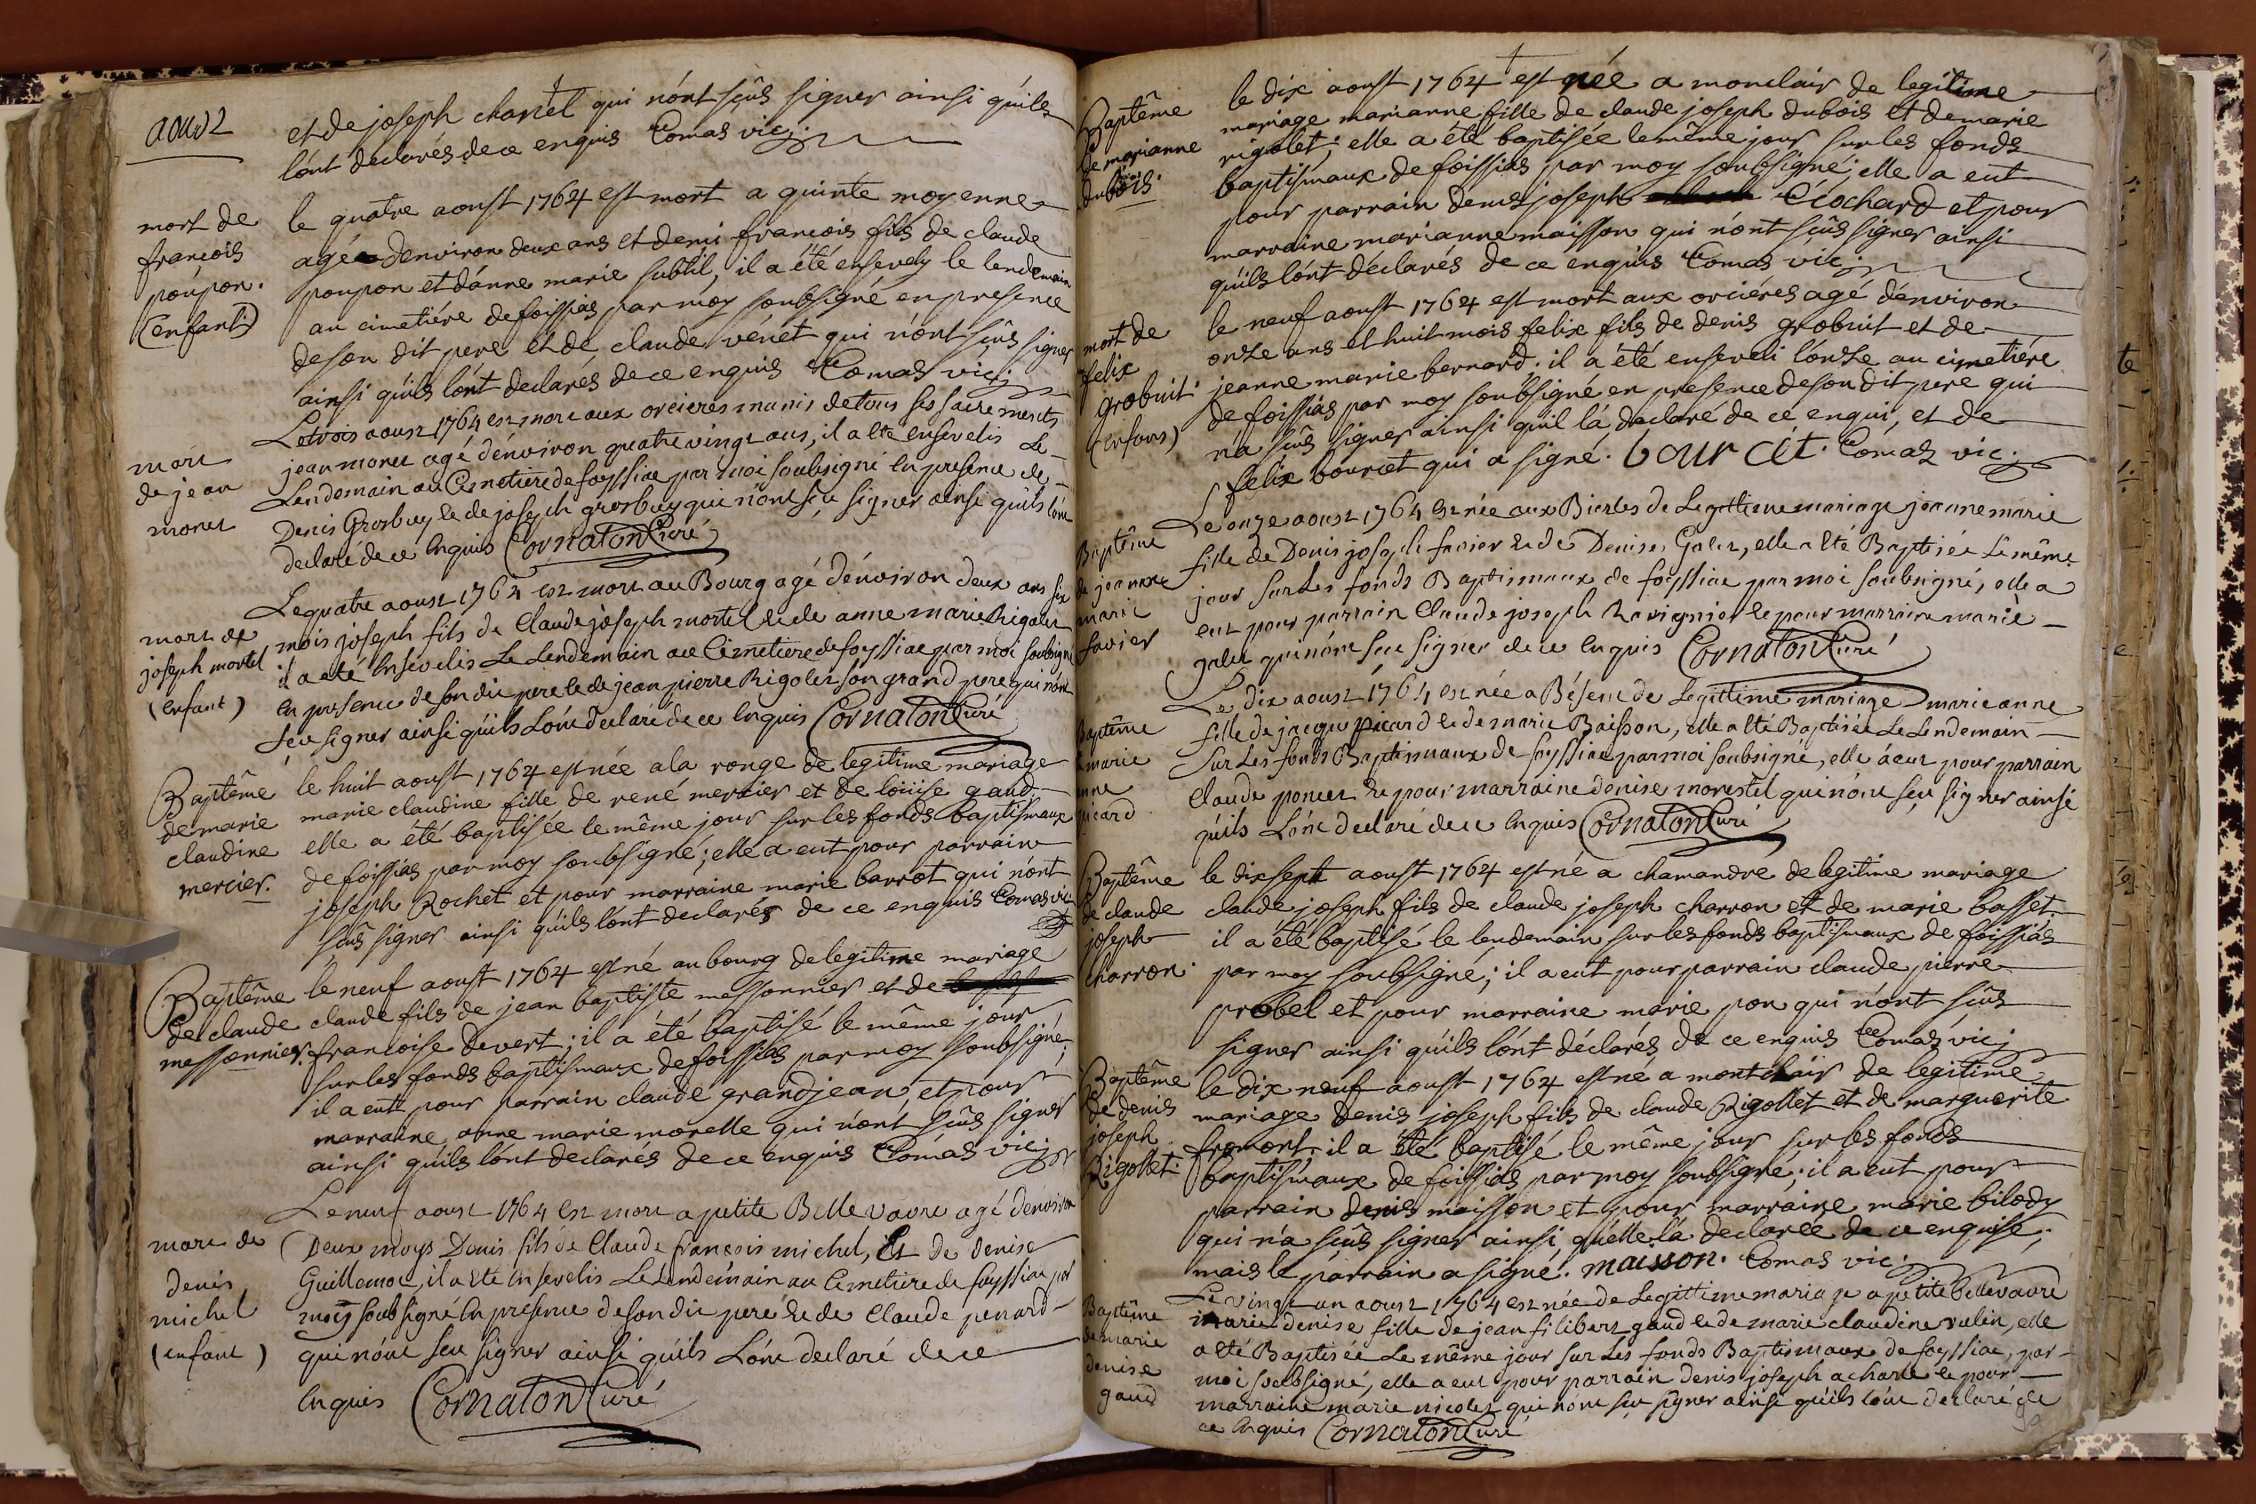 aoust
et de joseph charlet qui n'ont sçûs signer ainsi qu'ils
l'ont declarés de ce enquis Comas vic:
mort de
françois
poupon.
(enfant)
le quatre aoust 1764 est mort a quinte moyenne
agé denviron deux ans et demi françois fils de claude
poupon et d'anne marie subtil, il a été ensevely le lendemain
au cimetiére de foissias par moy soubsigné en presence
de son dit pere et de claude venet qui n'ont sçûs signer
ainsi qu'ils l'ont declarés de ce enquis Comas vic:
mort
de jean
moret
Le trois aoust 1764 est mort aux orcieres munis de tous ses sacrements
jean moret agé d'environ quatre vingt ans, il a eté ensevelis Le
Lendemain au Cimetiere de foyssiac par moi soubsigné En presence de
Denis Grosbuy et de joseph grosbuy qui n'ont sçu signer ainsi qu'ils l'ont
declaré de ce Enquis Cornaton Curé
mort de
joseph mortel
(enfant)
Le quatre aoust 1764 est mort au Bourg agé d'environ deux ans six
mois joseph fils de Claude joseph mortel et de anne marie Rigolet
il a eté Ensevelis Le Lendemain au Cimetiere de foyssiac par moi soubsigné
En presence de son dit pere et de jean pierre Rigolet son grand pere qui n'ont
sçu signer ainsi qu'ils L'ont declaré de ce Enquis Cornaton Curé
Baptême
de marie
claudine
mercier.
le huit aoust 1764 est née a la ronge de legitime mariage
marie claudine fille de rené mercier et de loüise gaud
elle a été baptisée le même jour sur les fonds baptismaux
de foissias par moy soubsigné; elle a eut pour parrain
joseph Rochet et pour marraine marie barrot qui n'ont
sçûs signer ainsi qu'ils l'ont declarés de ce enquis Comas vic
Baptême
de claude
messonnier.
le neuf aoust 1764 est né au bourg de legitime mariage
claude fils de jean baptiste messonnier et de
francoise devert; il a été baptisé le même jour
sur les fonds baptismaux de foissias par moy soubsigné;
il a eut pour parrain claude grandjean et pour
marraine anne marie morelle qui n'ont sçûs signer
ainsi qu'ils l'ont declarés de ce enquis Comas vic:
mort de
denis
michel
(enfant)
Le neuf aoust 1764 est mort a petite Belle vavre agé d'environ
Deux moys Denis fils de Claude françois michel, et de denise
Guillemot, il a eté Ensevelis Le Lendemain au Cimetiere de foyssiac par
moy soubsigné En presence de son dit pere et de Claude penard
qui n'ont sçu signer ainsi qu'ils L'ont declaré de ce
Enquis Cornaton Curé
Baptême
de marianne
dubois.
le dix aoust 1764 est née a monclair de legitime
mariage marianne fille de claude joseph dubois et de marie
rigolet; elle a été baptisée le même jour sur les fonds
baptismaux de foissias par moy soubsigné; elle a eut
pour parrain denis joseph Clochard et pour
marraine marianne maisson qui n'ont sçûs signer ainsi
qu'ils l'ont déclarés de ce enquis Comas vic:
mort de
felix
grobuit
(enfans)
le neuf aoust 1764 est mort aux orciéres agé d'environ
onze ans et huit mois felix fils de denis grobuit et de
jeanne marie bernard. il a été enseveli l'onze au cimetiére
de foissias par moy soubsigné en presence de son dit pere qui
n'a sçûs signer ainsi qu'il l'a declaré de ce enquis, et de
felix bourcet qui a signé. bourcet. Comas vic:
Baptême
de jeanne
marie
favier
Le onze aoust 1764 est née aux Biertes de Legittime mariage jeanne marie
fille de Denis joseph favier et de Denise Galet, elle a eté Baptisée Le même
jour sur Les fonds Baptismaux de foyssiac par moi soubsigné, elle a
eut pour parrain Claude joseph Ravignier et pour marraine marie
galet qui n'ont sçu signer de ce Enquis Cornaton Curé
Baptême
marie
anne
picard
Le dix aoust 1764 est née a Béseuc de Legittime mariage marie anne
fille de jacque picard et de marie Baisson, elle a eté Baptisée Le Lendemain
Sur Les fonds Baptismaux de foyssiac par moi soubsigné, elle a eut pour parrain
Claude poncet et pour marraine denise morestel qui n'ont sçu signer ainsi
qu'ils L'ont declaré de ce Enquis Cornaton Curé
Baptême
de claude
joseph
charron.
le dix sept aoust 1764 est né a chamandré de legitime mariage
claude joseph fils de claude joseph charron et de marie basset
il a été baptisé le lendemain sur les fonds baptismaux de foissias
par moy soubsigné; il a eut pour parrain claude pierre
probel et pour marraine marie pon qui n'ont sçûs
signer ainsi qu'ils l'ont déclarés de ce enquis Comas vic:
Baptême
de denis
joseph
Rigollet.
le dix neuf aoust 1764 est né a montclair de legitime
mariage denis joseph fils de claude Rigollet et de marguerite
fromont. il a été baptisé le même jour sur les fonds
baptismaux de foissias par moy soubsigné; il a eut pour
parrain denis maisson et pour marraine marie bilody
qui n'a sçûs signer ainsi qu'elle l'a declarée de ce enquise;
mais le parrain a signé. maisson. Comas vic:
Baptême
de marie
denise
gaud
Le vingt un aoust 1764 est née de Legittime mariage a petite bellevavre
marie denise fille de jean filibert gaud et de marie claudine vulin, elle
a eté Baptisée Le même jour sur Les fonds Baptismaux de foyssiac, par
moi soubsigné, elle a eut pour parrain denis joseph acharle et pour
marraine marie nicolet qui n'ont sçu signer ainsi qu'ils l'ont declaré de
ce Enquis Cornaton Curé